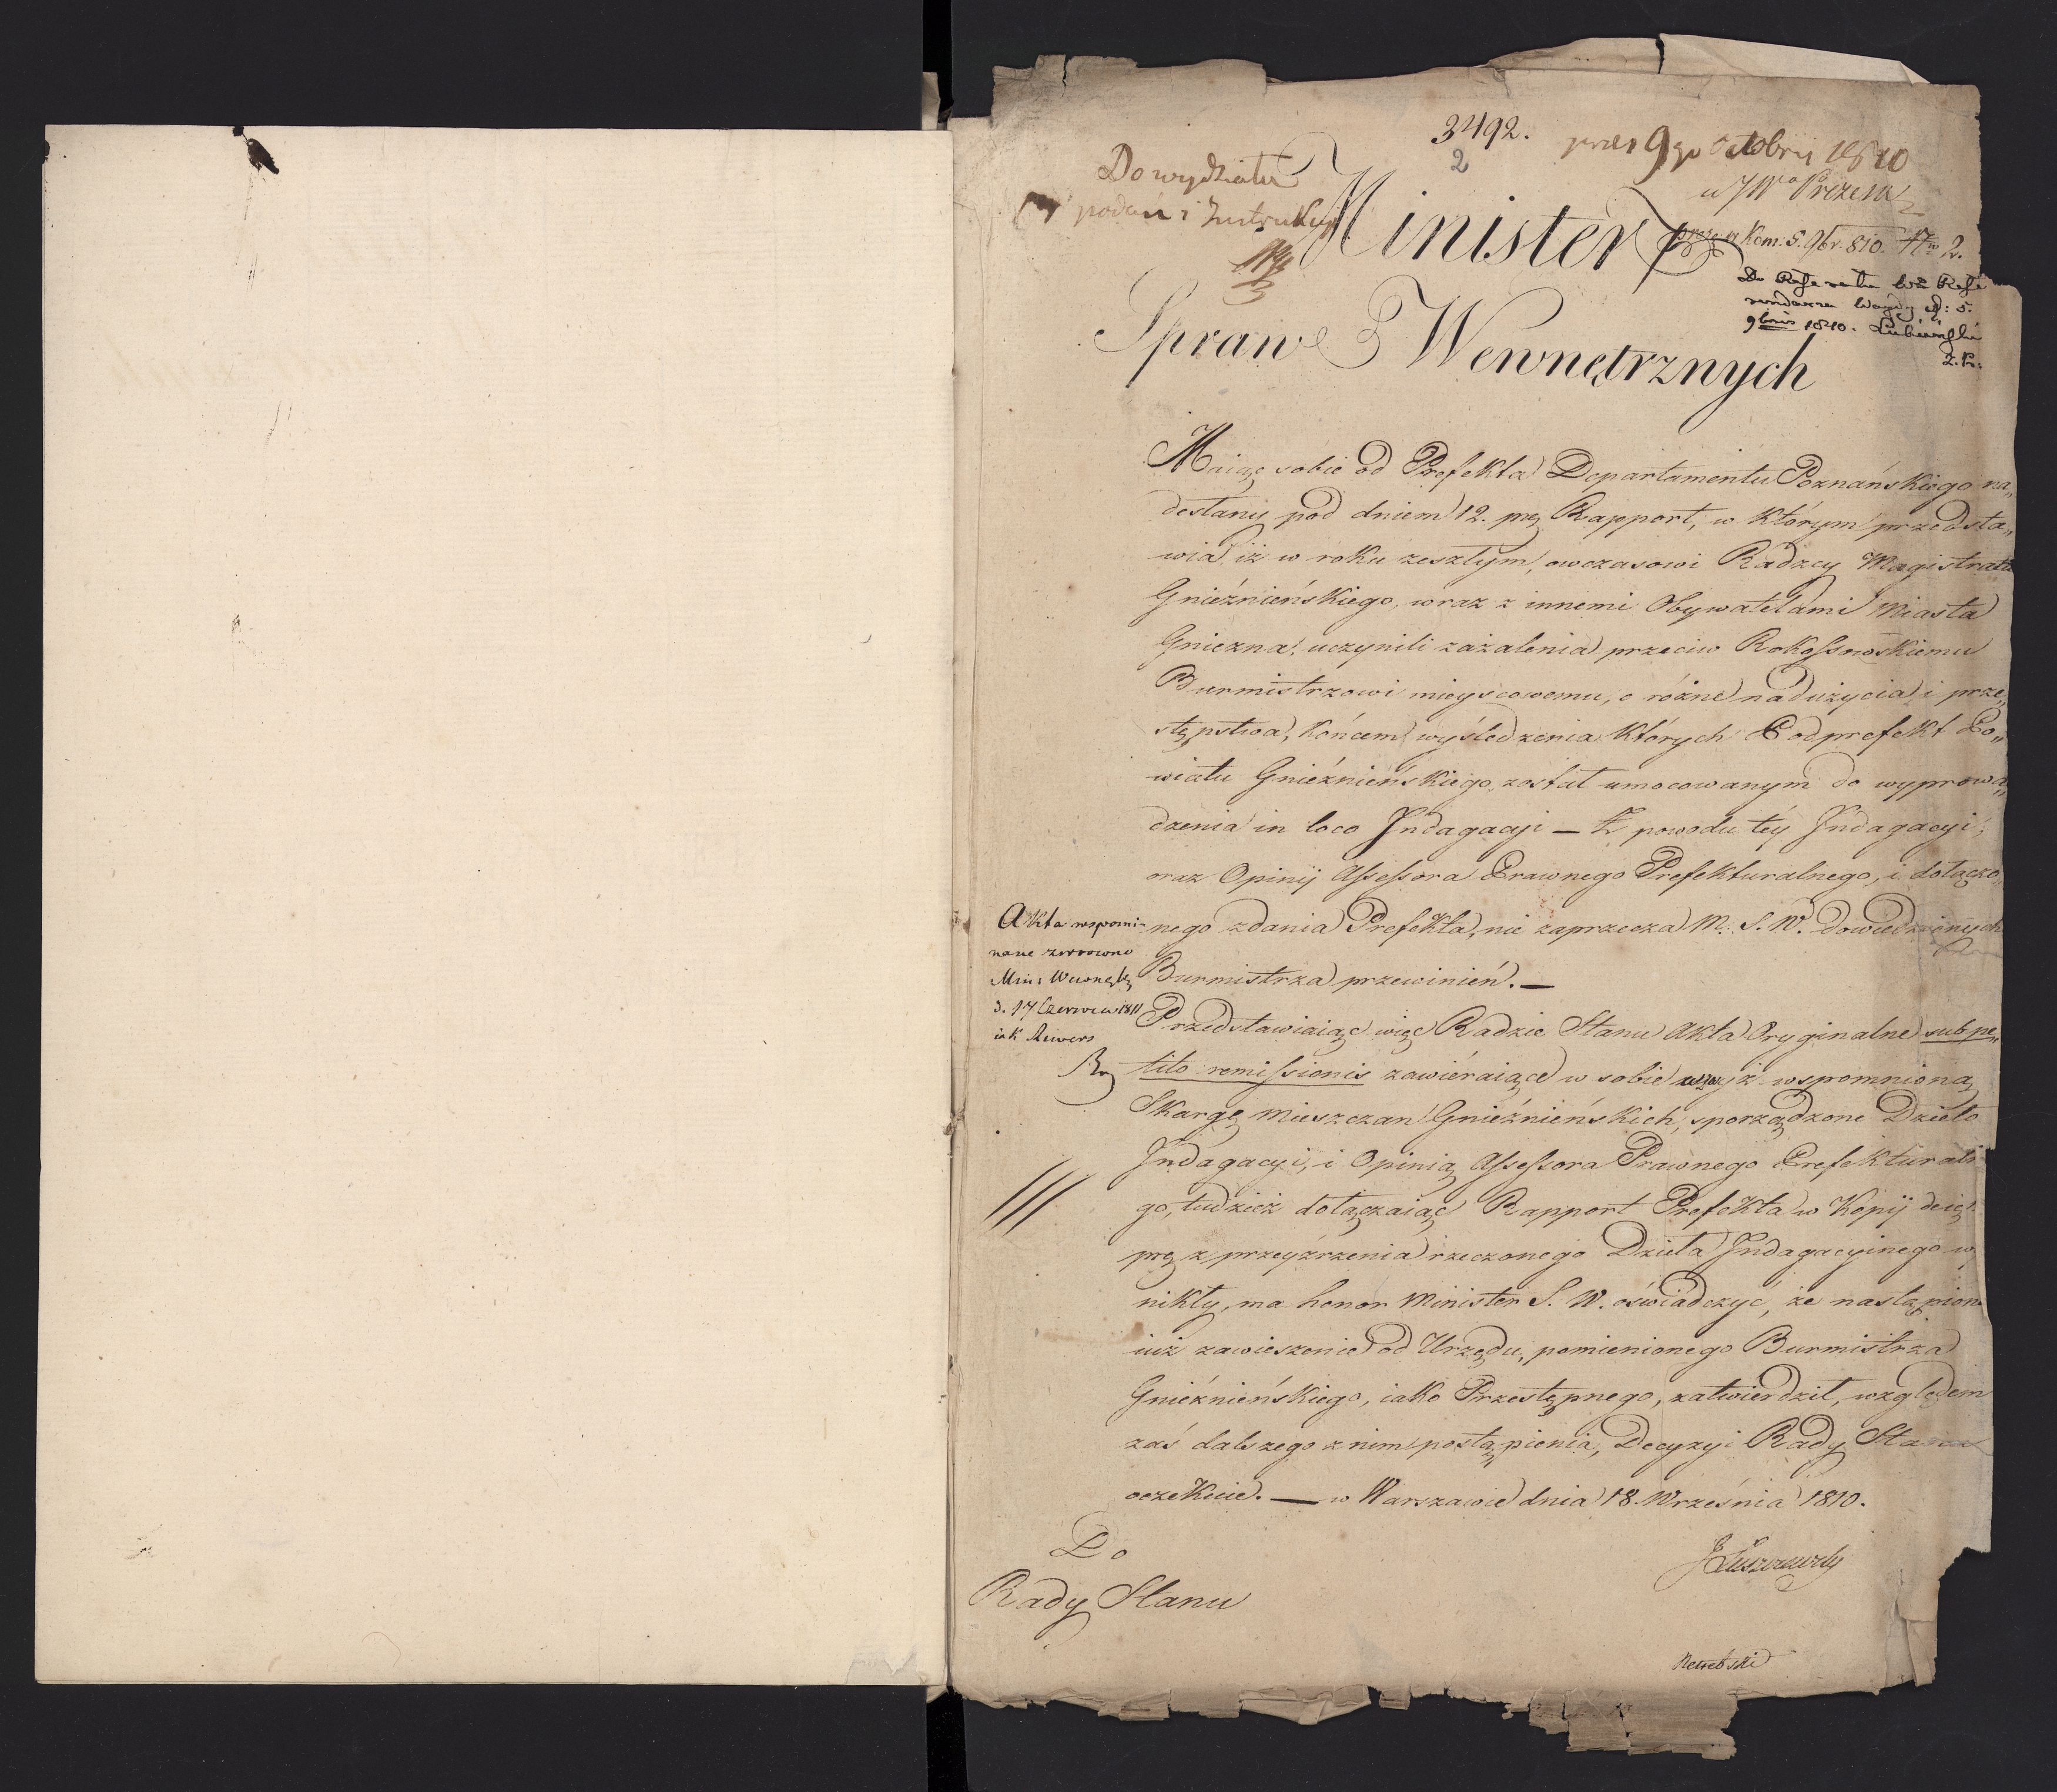 3492.
2
Do wydziału
podań i Instrukcyi
pras 9go Octobris 1810
w JWo Prezesa
praes w Kom. 5. 9br. 810. N 2.
Do Referatu Refe
rendarza d: 5.
9bris 1810. Lubieński
Minister
Spraw Wewnętrznych
Maiąc sobie od Prefekta Departamentu Poznańskiego na„
desłany pod dniem 12. Rapport, w którym przedsta„
wia iż w roku zeszłym, owczasowi Radzcy Magistratu
Gnieźnieńskiego, wraz z innemi Obywatelami Miasta
Gniezna, uczynili zażalenia przeciw Rokossowskiemu
Burmistrzowi mieyscowemu, o różne nadużycia i prze„
stępstwa, końcem wyśledzenia których Podprefekt Po„
wiatu Gnieźnieńskiego, został umocowanym do wyprowa„
dzenia in loco Indagacji — Z powodu téy Indagacyi,
oraz Opinij Assessora Prawnego Prefekturalnego, i dołączo„
nego zdania Prefekta, nie zaprzecza M. S. W. dowiedzionych
Burmistrza przewinień. —
Akta wspomi-
nane zwrócono
Min: Wewnętz
d. 17 Czerwca 1811
iak Rewers
Przedstawiaiąc więc Radzie Stanu Akta Oryginalne sub pe„
tito remissionis zawiéraiące w sobie wyż wspomnioną
Skargę Mieszczan Gnieźnieńskich, sporządzone Dzieło
Indagacyi, i Opinią Assessora Prawnego Prefekturalne
go, tudzież dołączaiąc Rapport Prefekta w Kopij
z przeyźrzenia rzeczonego Dzieła Indagacyinego wy
nikły, ma honor Minister S. W. oświadczyć, że nastąpione
iuż zawieszenie od Urzędu, pomienionego Burmistrza
Gnieźnieńskiego, iako Przestępnego, zatwierdził, względem
zaś dalszego z nim postąpienia, Decyzyi Rady Stanu
oczekuie. — w Warszawie dnia 18. Września 1810.
JŁuszczewsky
Do
Rady Stanu